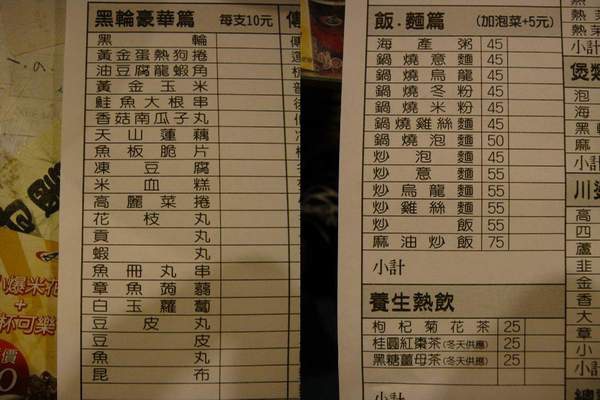 黑輪豪華篇 每支10元
黑輪
黃金蛋熱狗捲
油豆腐龍蝦角
黃金玉米
鮭魚大根串
香菇南瓜子丸
天山蓮藕
魚板脆片
凍豆腐
米血糕
高麗菜捲
花枝丸
貢丸
蝦丸
魚冊丸串
章魚蒟蒻
白玉蘿蔔
豆皮丸
豆皮
魚丸
昆布
飯.麵篇 (加泡菜+5元)
海產粥 45
鍋燒意麵 45
鍋燒烏龍 45
鍋燒冬粉 45
鍋燒米粉 45
鍋燒雞絲麵 45
鍋燒泡麵 50
炒泡麵 45
炒意麵 55
炒烏龍麵 55
炒雞絲麵 45
炒飯 55
麻油炒飯 75
小計
養生熱飲
枸杞菊花茶 25
桂圓紅棗茶(冬天供應) 25
黑糖薑母茶(冬天供應) 25
小計
小計
煲類
泡
海
黑
麻
小計
川燙
高
四
蘆
韭
金
香
大
章
小
小計
爆米花
+
杯可樂
價